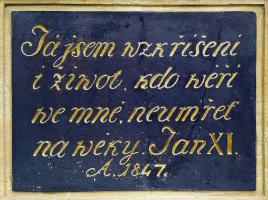 Já jsem wzkřišeni
i žiwot, kdo wěři
we mně, neumřeť
na wěky. Jan XI.
A. 1847.